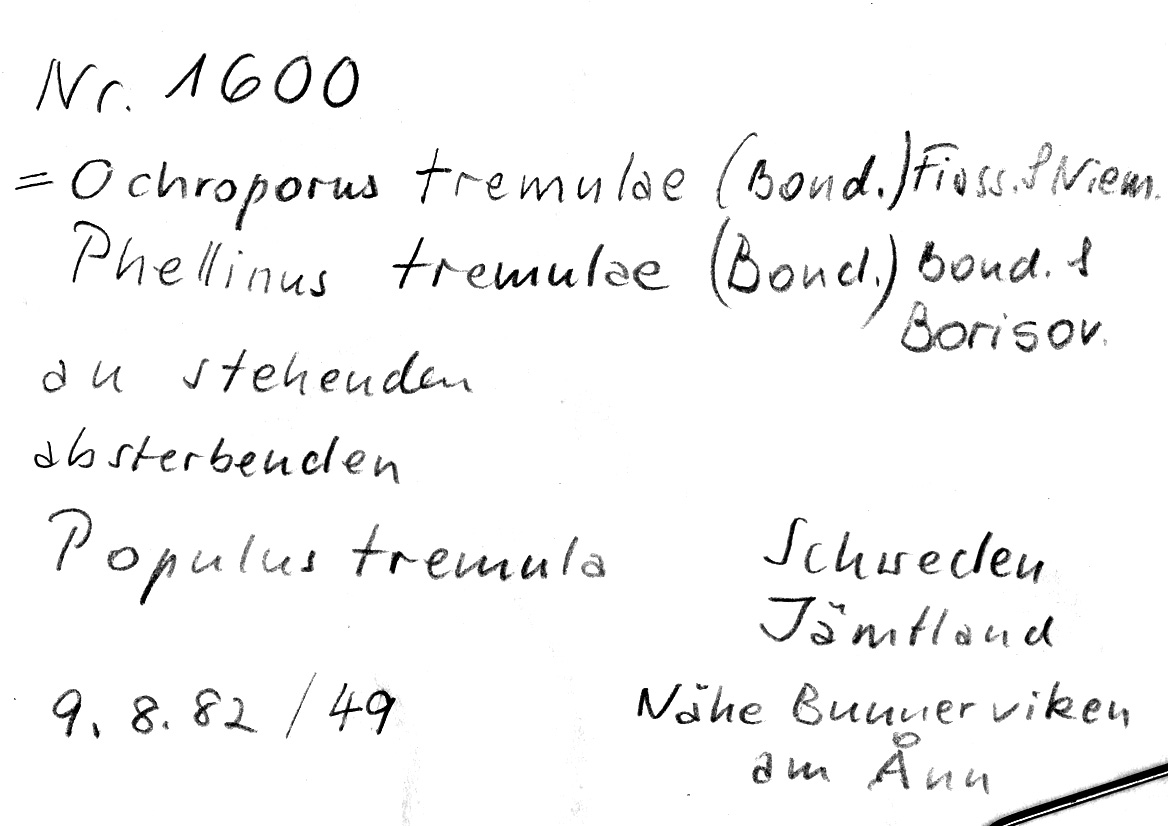 Nr. 1600
= Ochroporus tremulae (Bond.) Fiass. & Niem.
Phellinus tremulae (Bond.) Bond. &
Borisov.
an stehenden
absterbenden
Populus tremula
Schweden
Jämtland
9. 8. 82 / 49
Nähe Bunnerviken
am Ånn